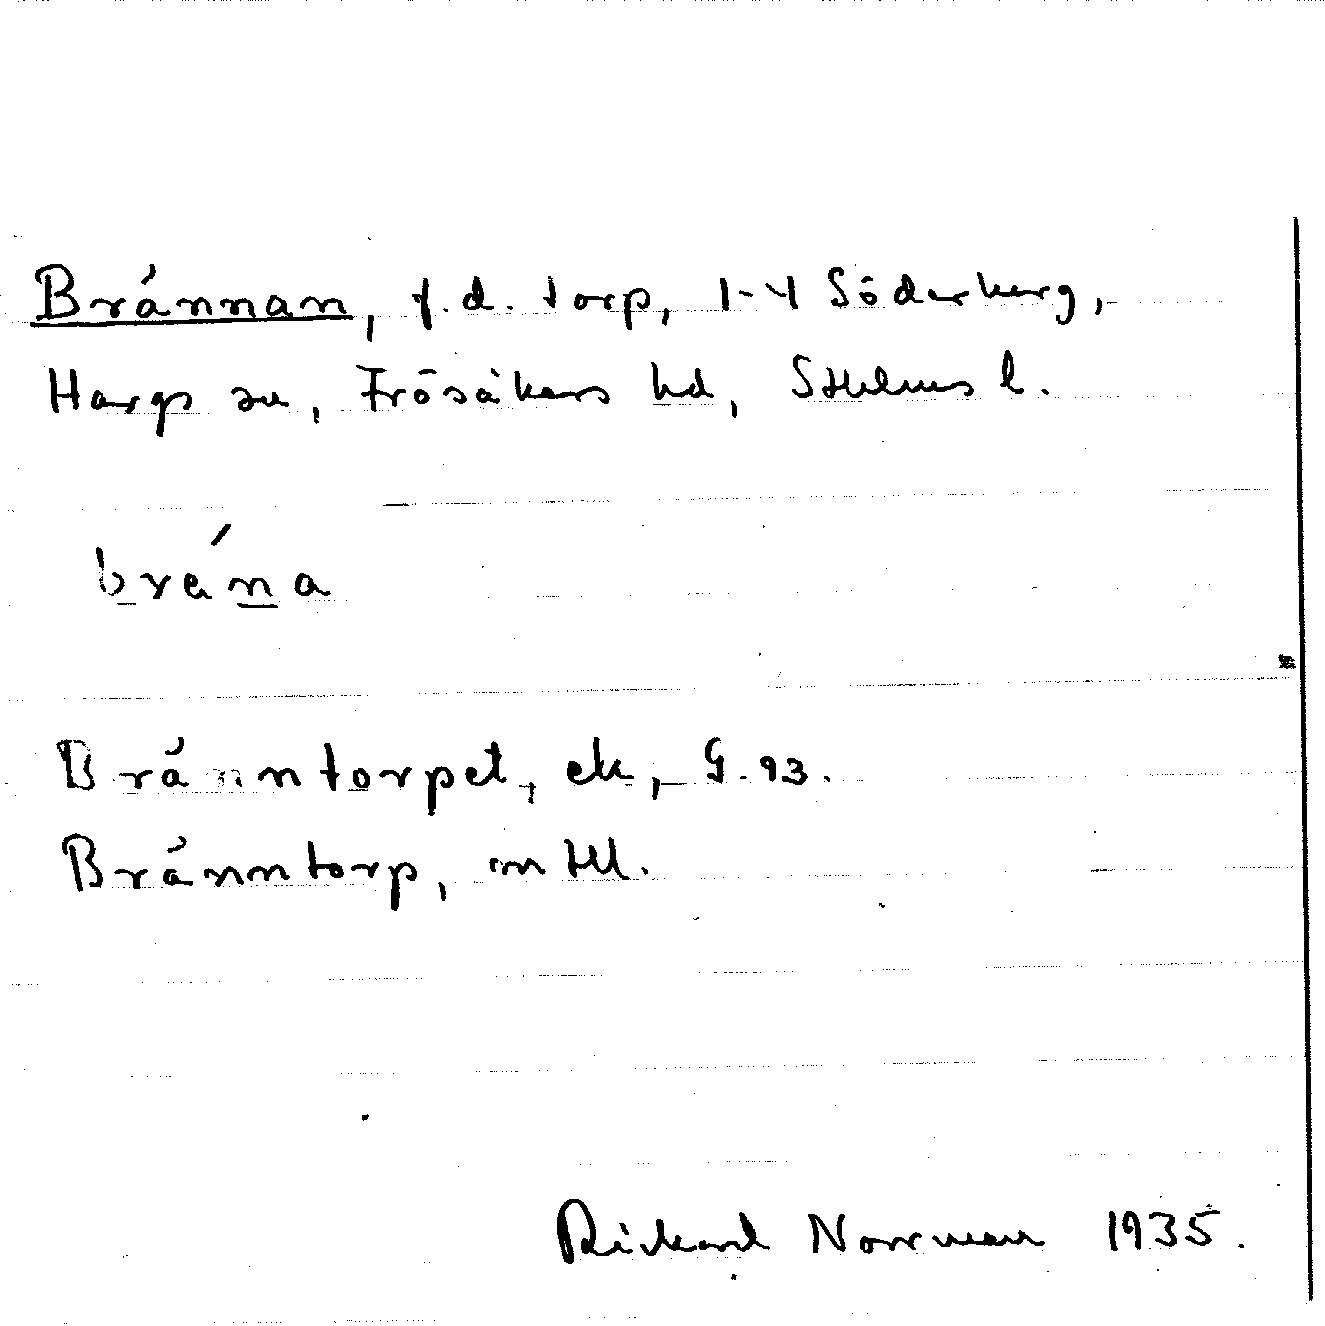 Brännan, f.d. torp, 1-4 Söderberg,
Hargs sn, Frösåkers hd, Sthlms l.
bräna
Bränntorpet, ek, G. 93.
Bränntorp, mtll.
Rickard Norrman 1935.